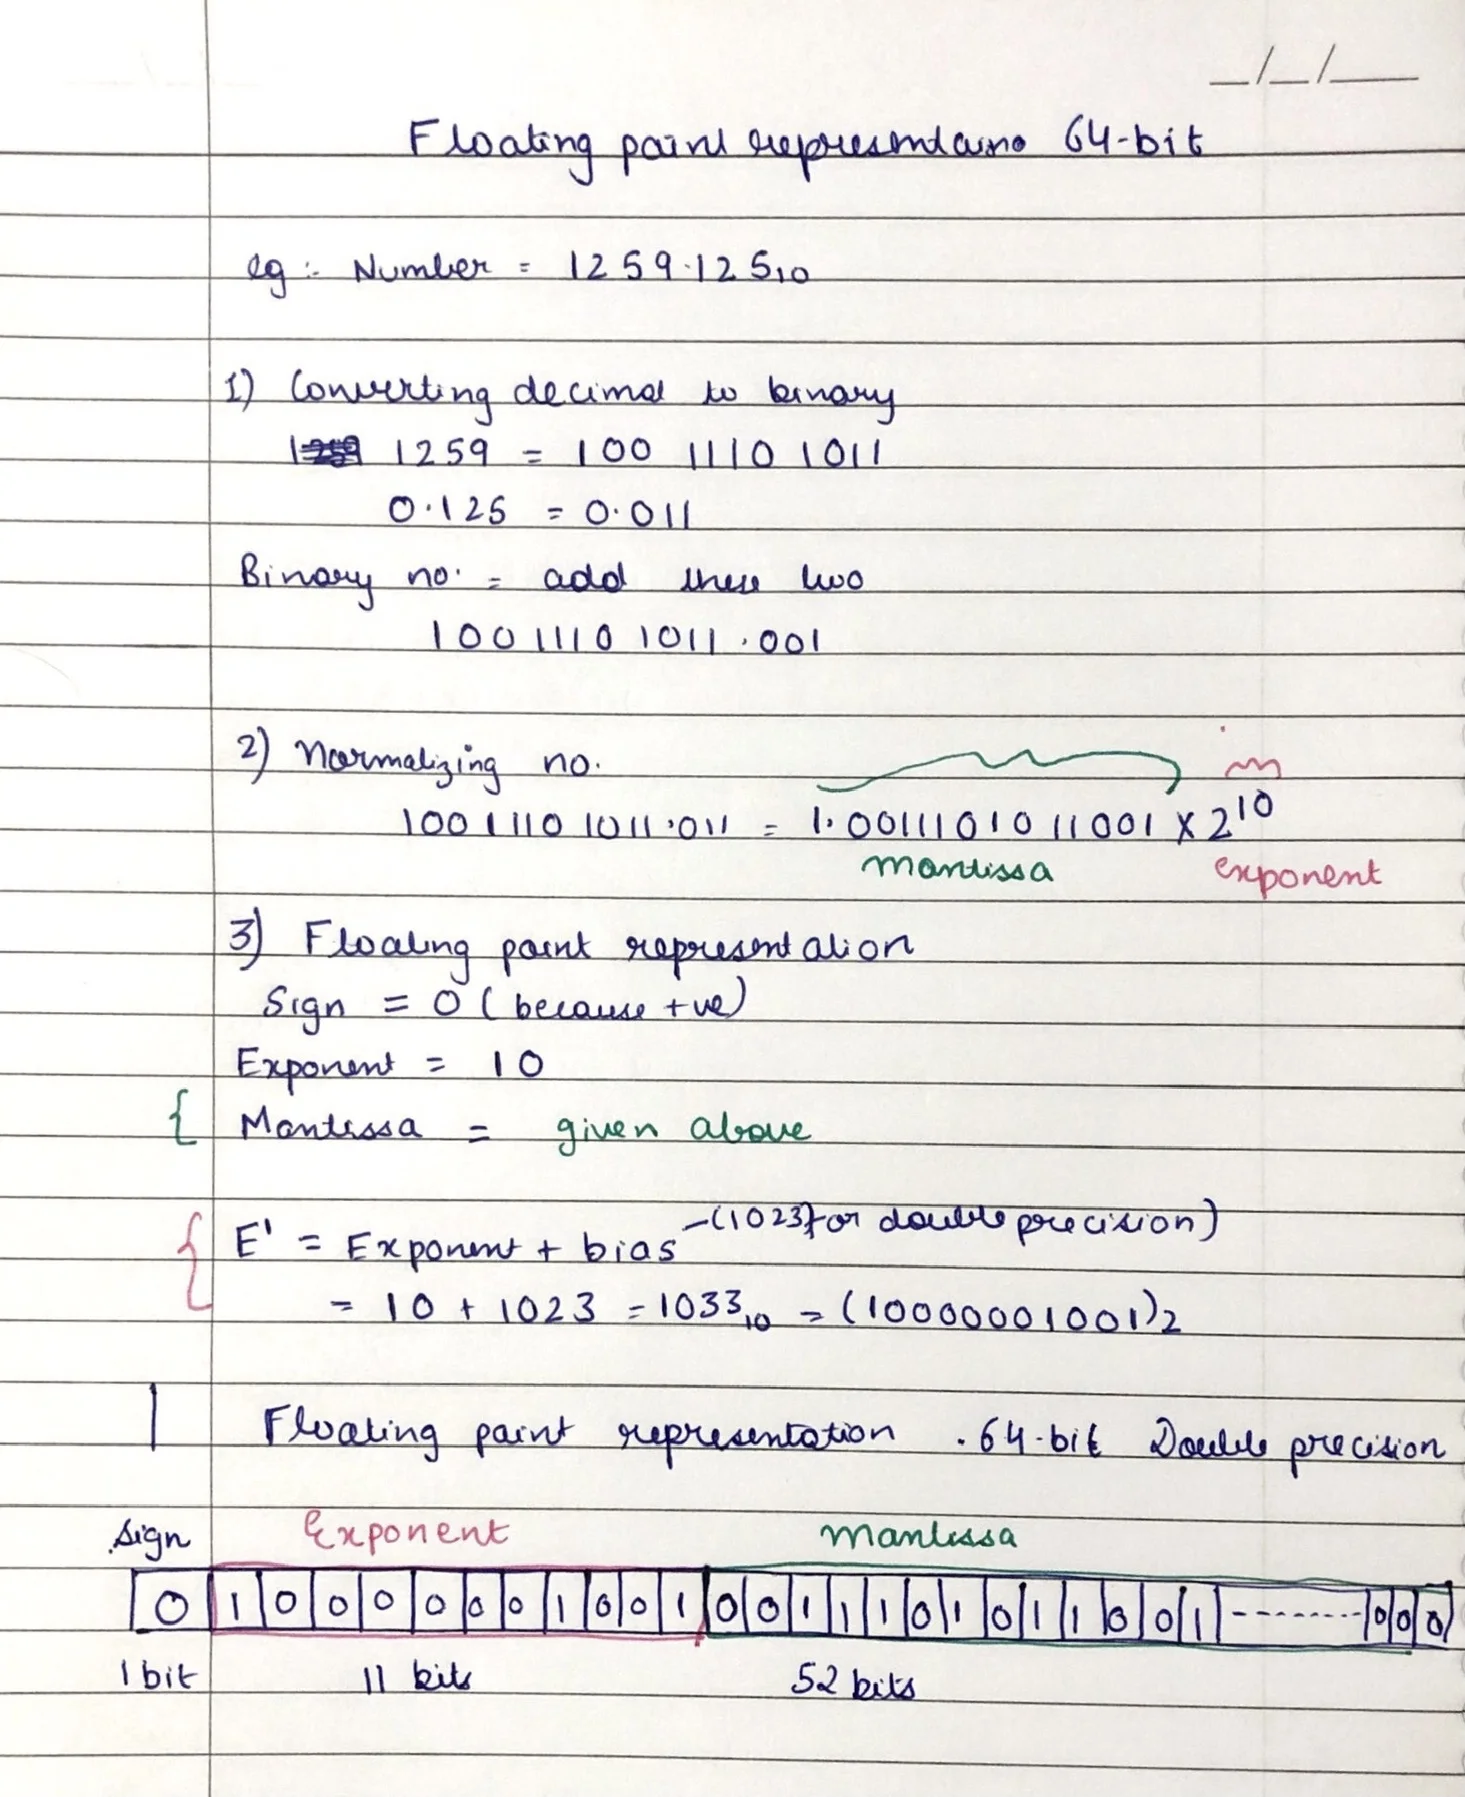 _/_/__
Floating point representaino 64-bit
eg :- Number = 1259.125₁₀
1) Converting decimal to binary
1259 = 100 1110 1011
0.125 = 0.011
Binary no. = add these two
100 1110 1011 .001
2) Normalizing no.
100 1110 1011.011 = 1.0011101011001 × 2¹⁰
mantissa exponent
3) Floating point representation
Sign = 0 (because +ve)
Exponent = 10
{ Mantissa = given above
{ E' = Exponent + bias -(1023 for double precision)
= 10 + 1023 = 1033₁₀ = (10000001001)₂
Floating point representation .64-bit Double precision
Sign Exponent mantissa
0 1 0 0 0 0 0 0 1 0 0 1 0 0 1 1 1 0 1 0 1 1 0 0 1 -------- 0 0 0
1 bit 11 bits 52 bits